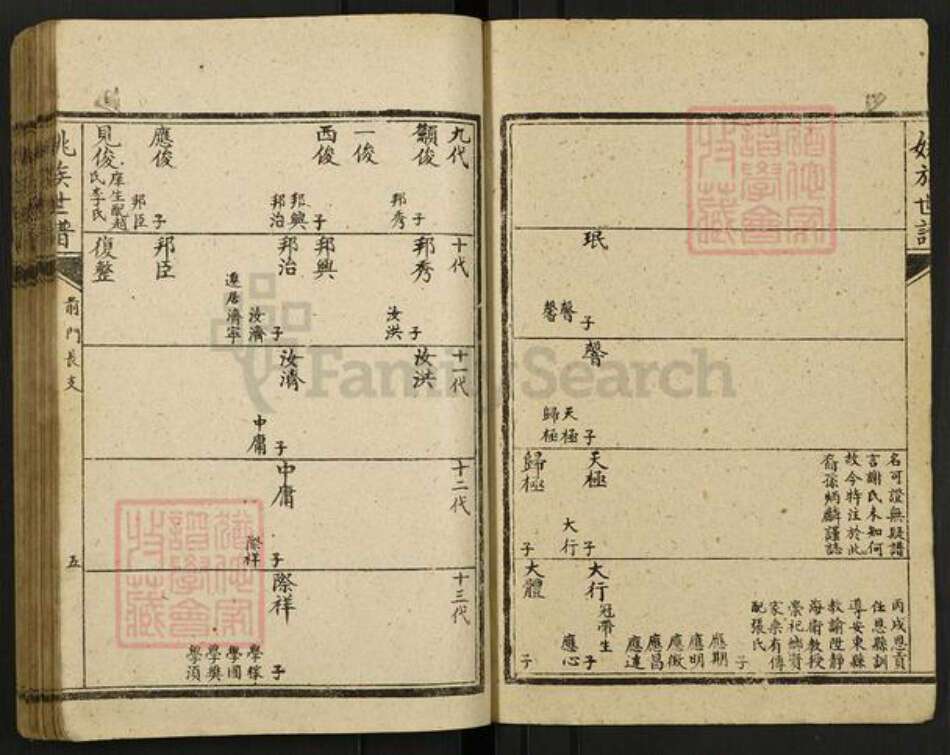 珉
子
聲
馨
馨
子
天極
歸極
名可證無疑譜
言謝氏未知何
故今特注於此
裔孫炳麟謹誌
天極
子
大行
歸極
子
丙戌恩貢
任恩縣訓
導安東縣
教諭陞靜
海衛教授
崇祀鄉賢
家乘有傳
配張氏
子
應期
應明
應徵
應昌
應達
大行
冠帶生
子
應心
大體
子
九代
顯俊
子
邦秀
一俊
西俊
子
邦興
邦治
應俊
子
邦臣
見俊
庠生配趙
氏李氏
十代
邦秀
子
汝洪
邦興
邦治
子
汝濟
遷居濟寧
邦臣
復整
十一代
汝洪
汝濟
子
中庸
十二代
中庸
子
際祥
十三代
際祥
子
學稼
學圃
學樊
學須
姚族世譜
前門長支
五
FamilySearch